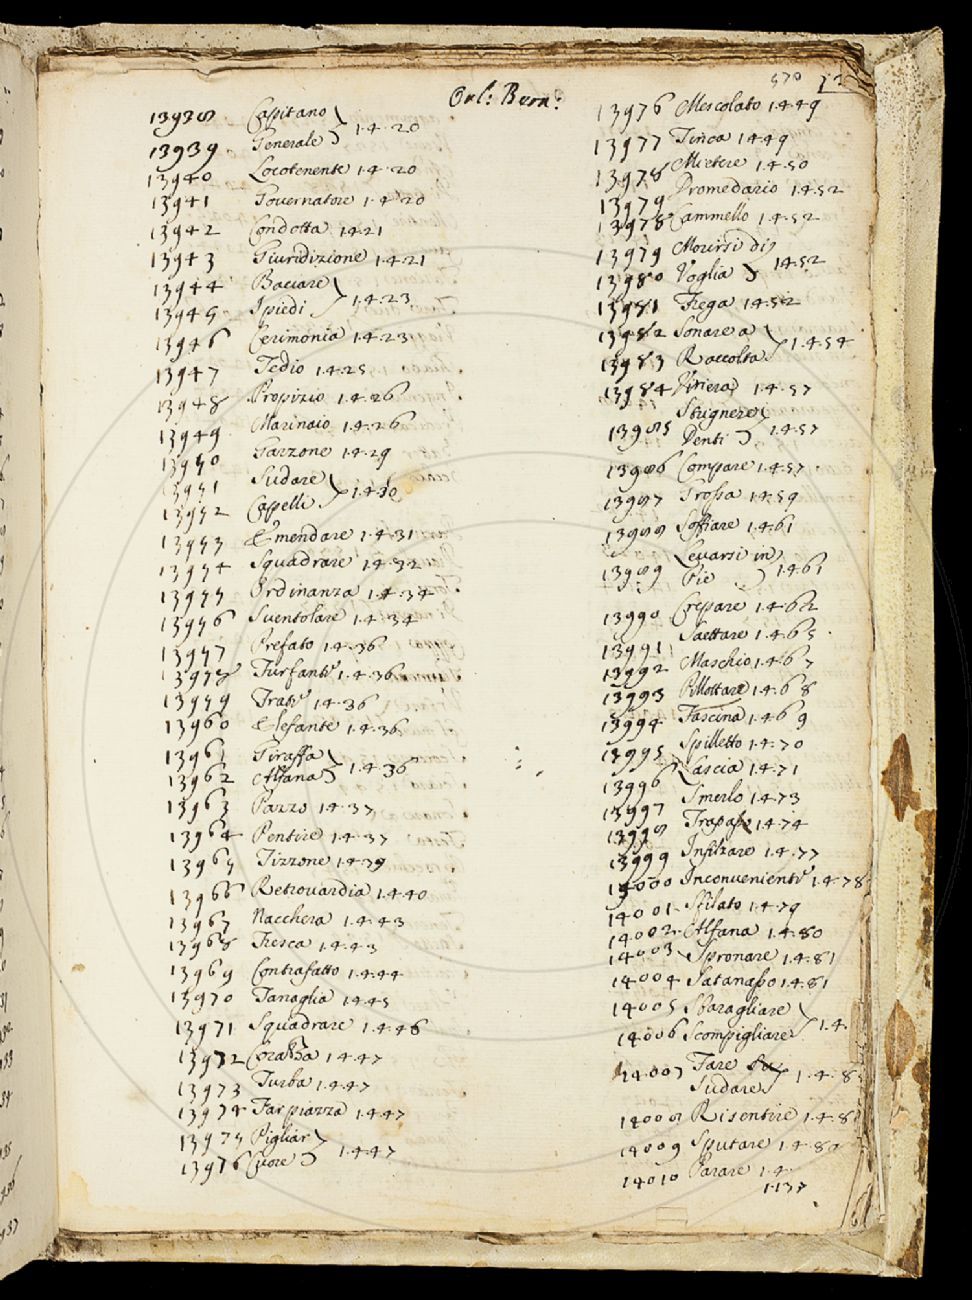 570
Orl: Bern:
13938 Cappitano
13939 Generale } 1.4.20
13940 Locotenente 1.4.20
13941 Governatore 1.4.20
13942 Condotta 1.4.21
13943 Giuridizione 1.4.21
13944 Baciare
13945 I piedi } 1.4.23
13946 Cerimonia 1.4.23
13947 Tedio 1.4.25
13948 Propizio 1.4.26
13949 Marinaio 1.4.26
13950 Garzone 1.4.29
13951 Sudare
13952 Cappelli } 1.4.30
13953 Emendare 1.4.31
13954 Squadrare 1.4.32
13955 Ordinanza 1.4.34
13956 Sventolare 1.4.34
13957 Prefato 1.4.36
13958 Furfanti 1.4.36
13959 Frati 1.4.36
13960 Elefante 1.4.36
13961 Giraffa
13962 Alfana } 1.4.36
13963 Pazzo 1.4.37
13964 Pentire 1.4.37
13965 Tizzone 1.4.39
13966 Retrovardia 1.4.40
13967 Nacchera 1.4.43
13968 Fresca 1.4.43
13969 Contrafatto 1.4.44
13970 Tanaglia 1.4.45
13971 Squadrare 1.4.46
13972 Corazza 1.4.47
13973 Turba 1.4.47
13974 Far piazza 1.4.47
13975 Pigliar
13976 Cuore } 1.4.47
13976 Mescolato 1.4.49
13977 Tinca 1.4.49
13978 Mietere 1.4.50
13979 Dromedario 1.4.52
13978 Cammello 1.4.52
13979 Moversi di
13980 Voglia } 1.4.52
13981 Frega 1.4.52
13982 Sonare a
13983 Raccolta } 1.4.54
13984 Riviera 1.4.57
Strignere
13985 Denti } 1.4.57
13986 Compare 1.4.57
13987 Grossa 1.4.59
13988 Soffiare 1.4.61
Levarsi in
13989 Pie } 1.4.61
13990 Crepare 1.4.62
13991 Saettare 1.4.65
13992 Maschio 1.4.67
13993 Pillottare 1.4.68
13994 Fascina 1.4.69
13995 Spilletto 1.4.70
13996 Lascia 1.4.71
13997 Smerlo 1.4.73
13998 Trapasso 1.4.74
13999 Infilzare 1.4.77
14000 Inconvenienti 1.4.78
14001 Stilato 1.4.79
14002 Alfana 1.4.80
14003 Spronare 1.4.81
14004 Satanasso 1.4.81
14005 Sbaragliare
14006 Scompigliare } 1.4.
14007 Fare
Sudare } 1.4.8
14008 Risentire 1.4.8
14009 Sputare 1.4.8
14010 Parare 1.4.
1137